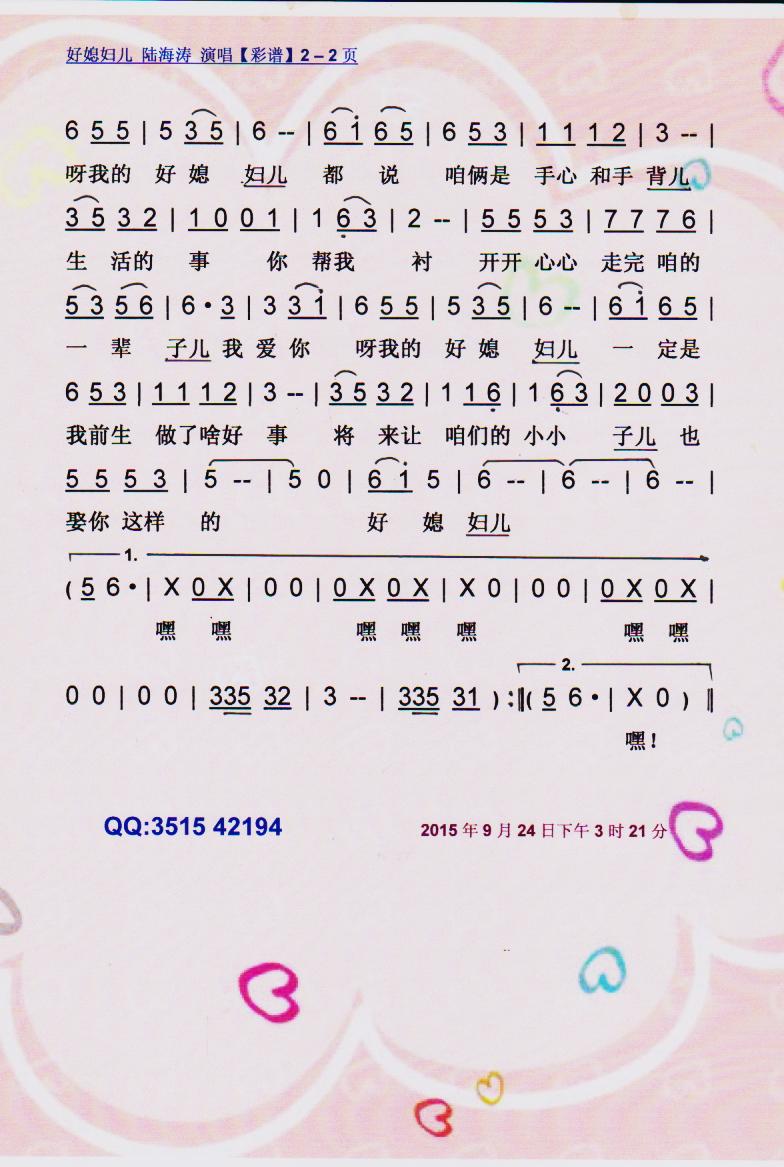 好媳妇儿 陆海涛 演唱【彩谱】2 – 2 页
6 5 5 | 5 3 5 | 6 -- | 6 1 6 5 | 6 5 3 | 1 1 1 2 | 3 -- |
呀我的 好 媳 妇儿 都 说 咱俩是 手心 和手 背儿
3 5 3 2 | 1 0 0 1 | 1 6 3 | 2 -- | 5 5 5 3 | 7 7 7 6 |
生 活的 事 你 帮我 衬 开开 心心 走完 咱的
5 3 5 6 | 6 • 3 | 3 3 1 | 6 5 5 | 5 3 5 | 6 -- | 6 1 6 5 |
一 辈 子儿 我 爱 你 呀我的 好 媳 妇儿 一 定是
6 5 3 | 1 1 1 2 | 3 -- | 3 5 3 2 | 1 1 6 | 1 6 3 | 2 0 0 3 |
我前生 做了啥好 事 将 来让 咱们的 小小 子儿 也
5 5 5 3 | 5 -- | 5 0 | 6 1 5 | 6 -- | 6 -- | 6 -- |
娶你 这样 的 好 媳 妇儿
1.
( 5 6 • | X 0 X | 0 0 | 0 X 0 X | X 0 | 0 0 | 0 X 0 X |
嘿 嘿 嘿 嘿 嘿 嘿 嘿
2.
0 0 | 0 0 | 335 32 | 3 -- | 335 31 ) :‖( 5 6 • | X 0 ) ‖
嘿！
QQ:3515 42194
2015 年 9 月 24 日下午 3 时 21 分